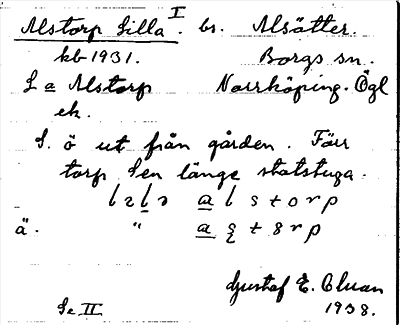 Alstorp Lilla I. bs. Alsätter.
kb 1931. Borgs sn.
L a Alstorp Norrköping. Ögl
ek.
S. ö ut från gården. Förr
torp sen länge statstuga.
a l s t o r p
ä. " t o r p
Gustaf E.
Se II 1938.